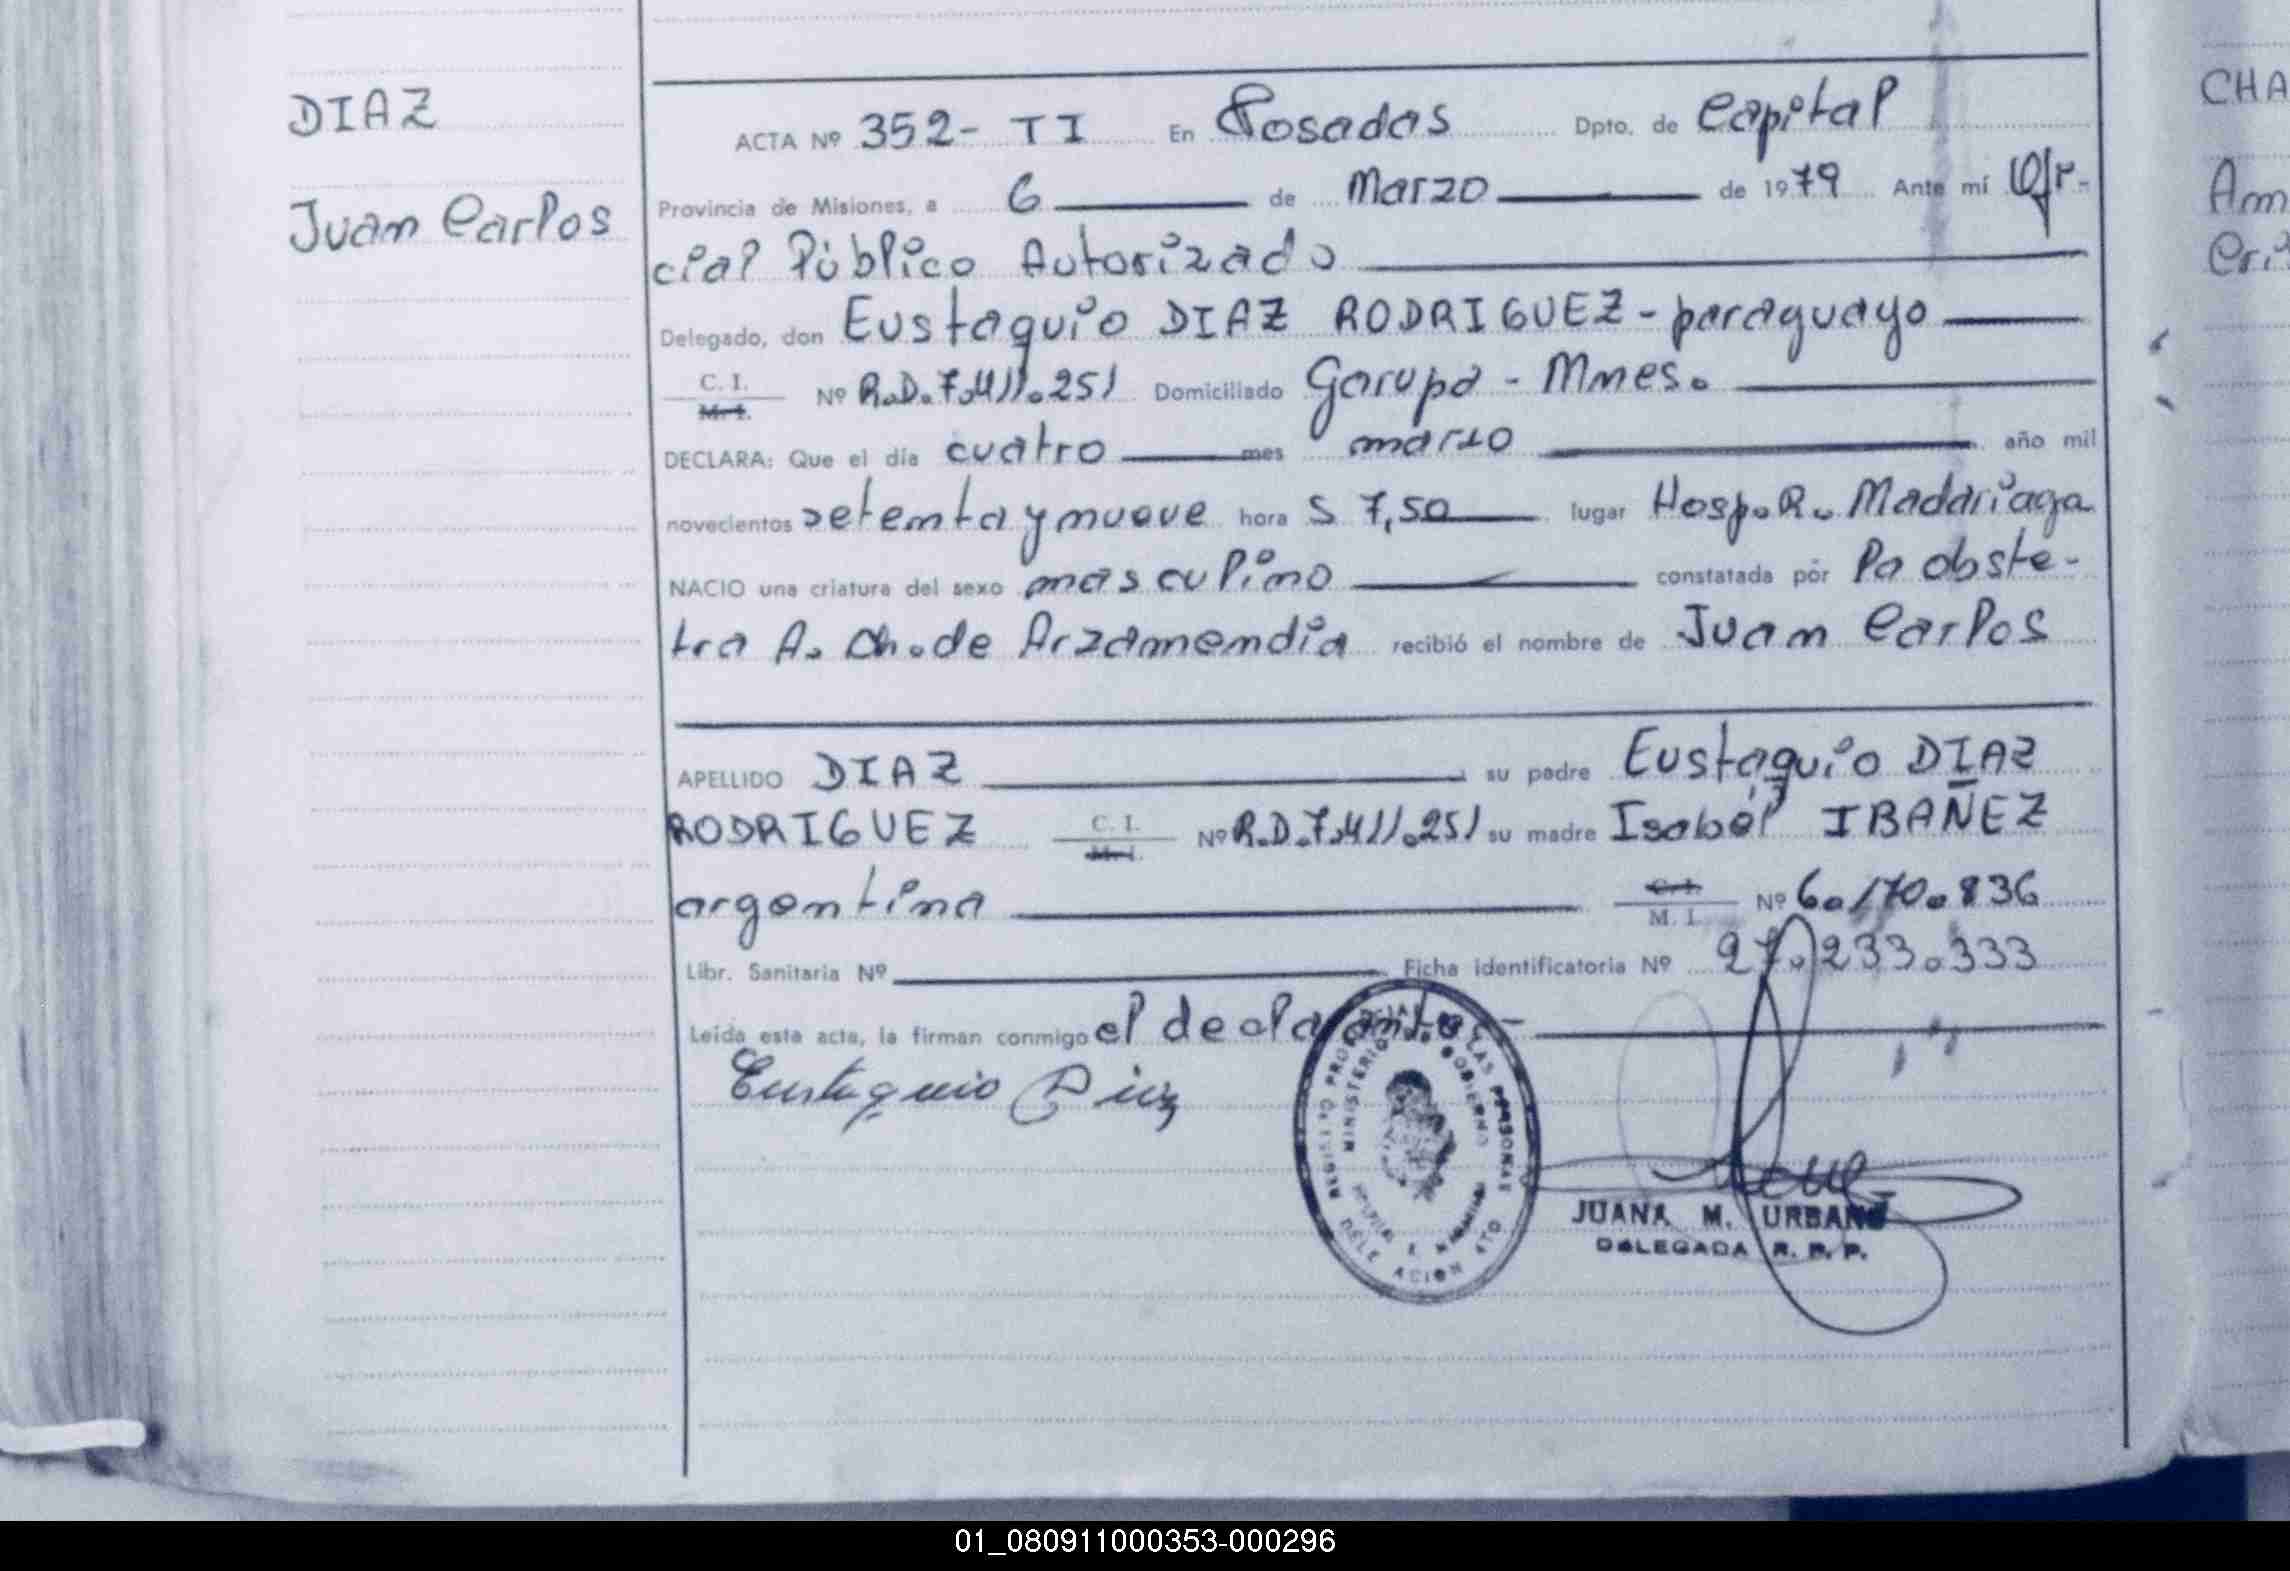 DIAZ
Juan Carlos
ACTA Nº 352- TI En Posadas Dpto. de Capital
Provincia de Misiones, a 6 de Marzo de 1979 Ante mí Ofi-
cial Público Autorizado
Delegado, don Eustaquio DIAZ RODRIGUEZ - paraguayo
C. I.
M. I. Nº R.D.7.411.251 Domiciliado Garupa - Mnes.
DECLARA: Que el día cuatro mes marzo año mil
novecientos setenta y nueve hora S 7,50 lugar Hosp. R. Madariaga
NACIO una criatura del sexo masculino constatada por la obste-
tra A. Ch. de Arzamendia recibió el nombre de Juan Carlos
APELLIDO DIAZ su padre Eustaquio DIAZ
RODRIGUEZ C. I. M. I. Nº R.D.7.411.251 su madre Isabel IBAÑEZ
argentina C. I. M. I. Nº 6.170.836
Libr. Sanitaria Nº Ficha identificatoria Nº 27.233.333
Leída esta acta, la firman conmigo el declarante.-
Eustaquio Diaz
REGISTRO PROVINCIAL DE LAS PERSONAS
MINISTERIO DE GOBIERNO
DELEGACION
JUANA M. URBANO
DELEGADA R. P. P.
CHA
Am
Cri
01_080911000353-000296